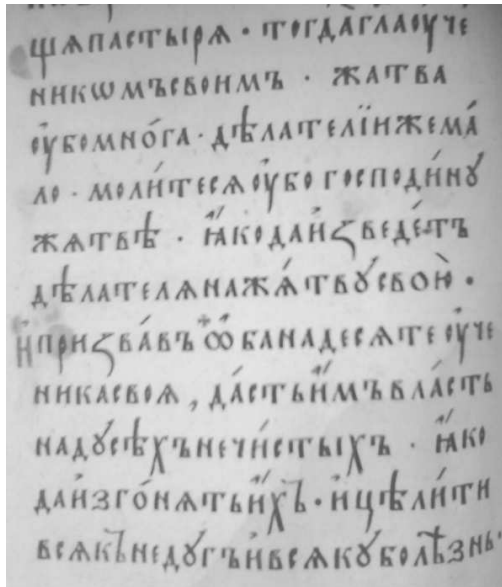 щѧпастырѧ · тогдаглаоуче
никѡмъсвоимъ · жатва
оу҆бомно́га · дѣлателїиже ма́
ло · моли́тесѧоу҆бо господи́нꙋ
жѧтвѣ · ꙗ҆́кодаи҆ꙁведе́тъ
дѣлателѧнажѧ́твꙋсвою̀ ·
и҆приꙁва́въ ѻ҆банадесѧтеоу҆че
никасвоѧ , да́стьи҆́мъвла́сть
надꙋсѣхънечи́стыхъ · ꙗ҆́ко
даи҆зго́нѧтьи҆́хъ · и҆цѣли́ти
всѧкъ́недꙋгъи҆всѧкꙋболѣ́знь·